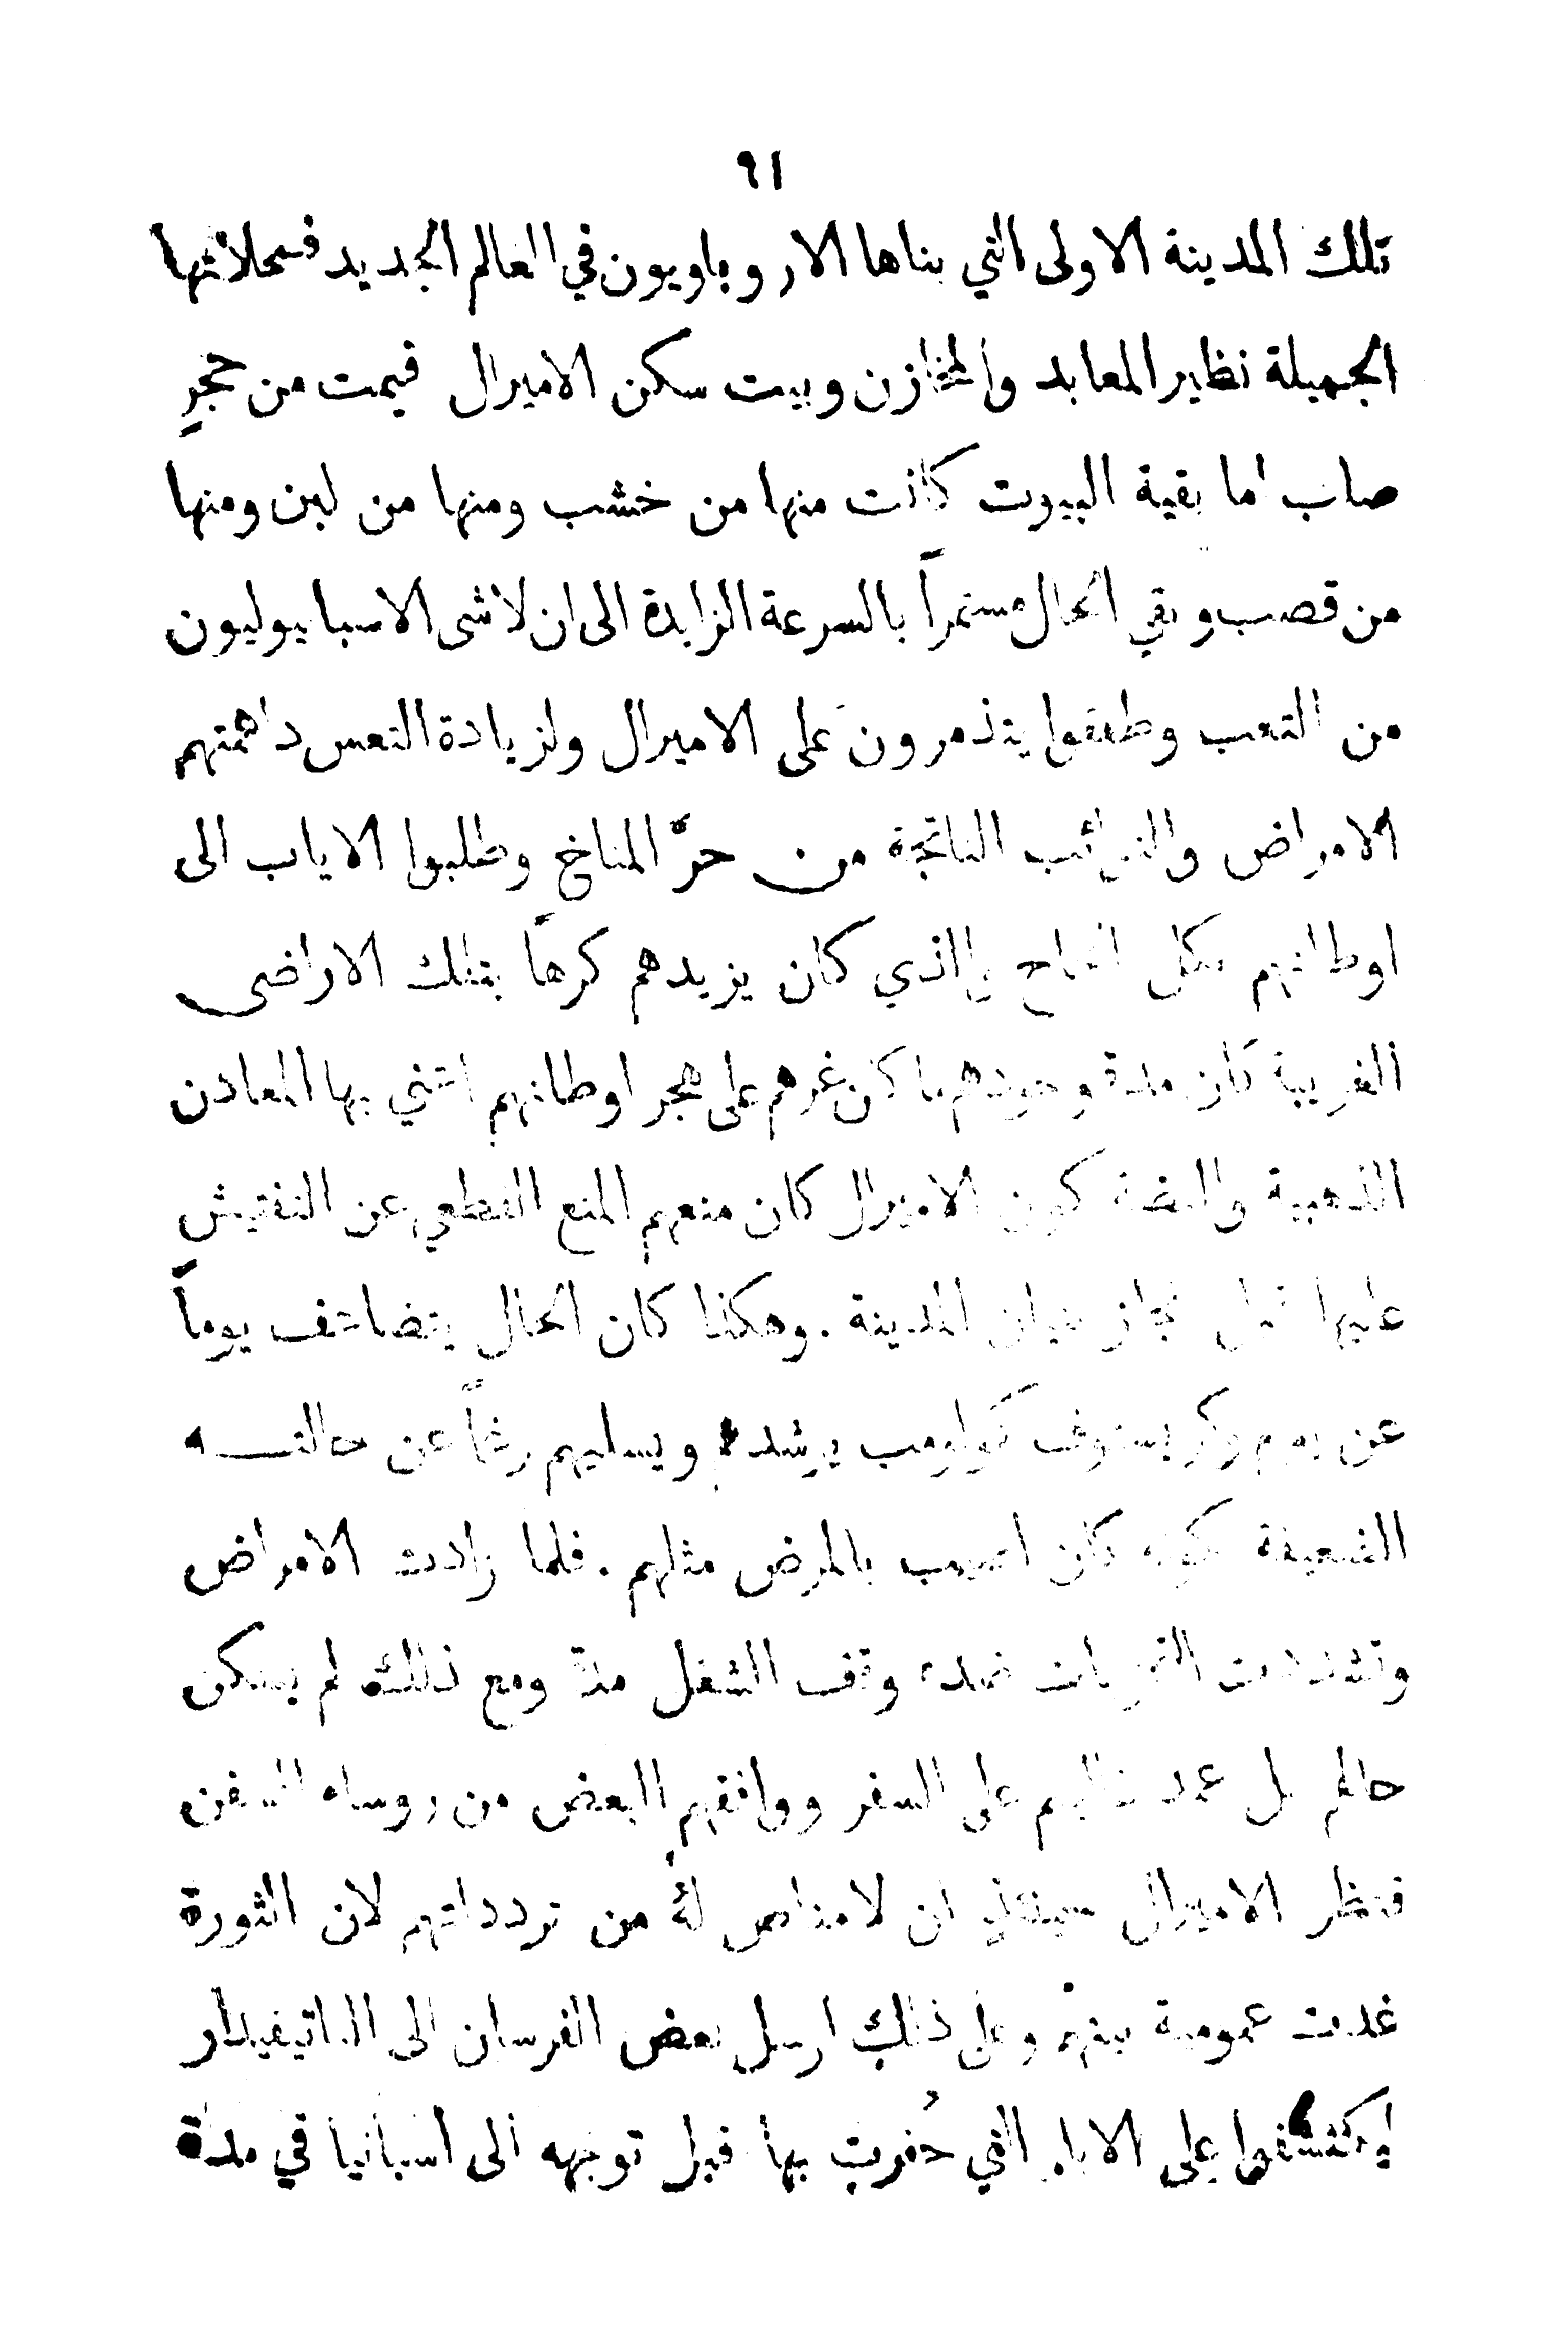 ٩١
تلك المدينة الاولى التي بناها الاروباويون في العالم الجديد فمحلاتها
الجميلة نظير المعابد والمخازن وبيت سكن الاميرال قيمت من حجرٍ
صلب اما بقية البيوت كانت منها من خشب ومنها من لبن ومنها
من قصب وبقي الحال مستمراً بالسرعة الزايدة الى ان لاشى الاسبانيوليون
من التعب وطفقوا يتذمرون على الاميرال ولزيادة التعس داهمتهم
الامراض والنوائب الناتجة من حرّ المناخ وطلبوا الاياب الى
اوطانهم بكل الحاح والذي كان يزيدهم كرهاً بتلك الاراضي
الغريبة كان مدة وجودهم ما كان غرهم على هجر اوطانهم اعني بها المعادن
الذهبية والفضة كون الاميرال كان منعهم المنع القطعي عن التفتيش
عليها قبل نجاز بنيان المدينة . وهكذا كان الحال يتضاعف يوماً
عن يوم وكريستوف كولومب يرشدهم ويسليهم رغماً عن حالته
الضعيفة كونه كان اصيب بالمرض مثلهم . فلما زادت الامراض
وتشددت التحزبات ضده وقف الشغل مدة ومع ذلك لم يسكن
حالهم بل عمد غالبهم على السفر ووافقهم البعض من روساء السفن
فنظر الاميرال حينئذٍ ان لامناص لهُ من تردداتهم لان الثورة
غدت عمومية بينهم وعلى ذلك ارسل بعض الفرسان الى الناتيفيدار
ليكتشفوا على الابار التي حُفرت بها قبل توجهه الى اسبانيا في مدة